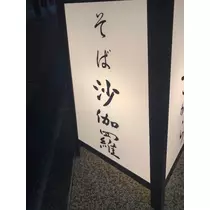 そば沙伽羅